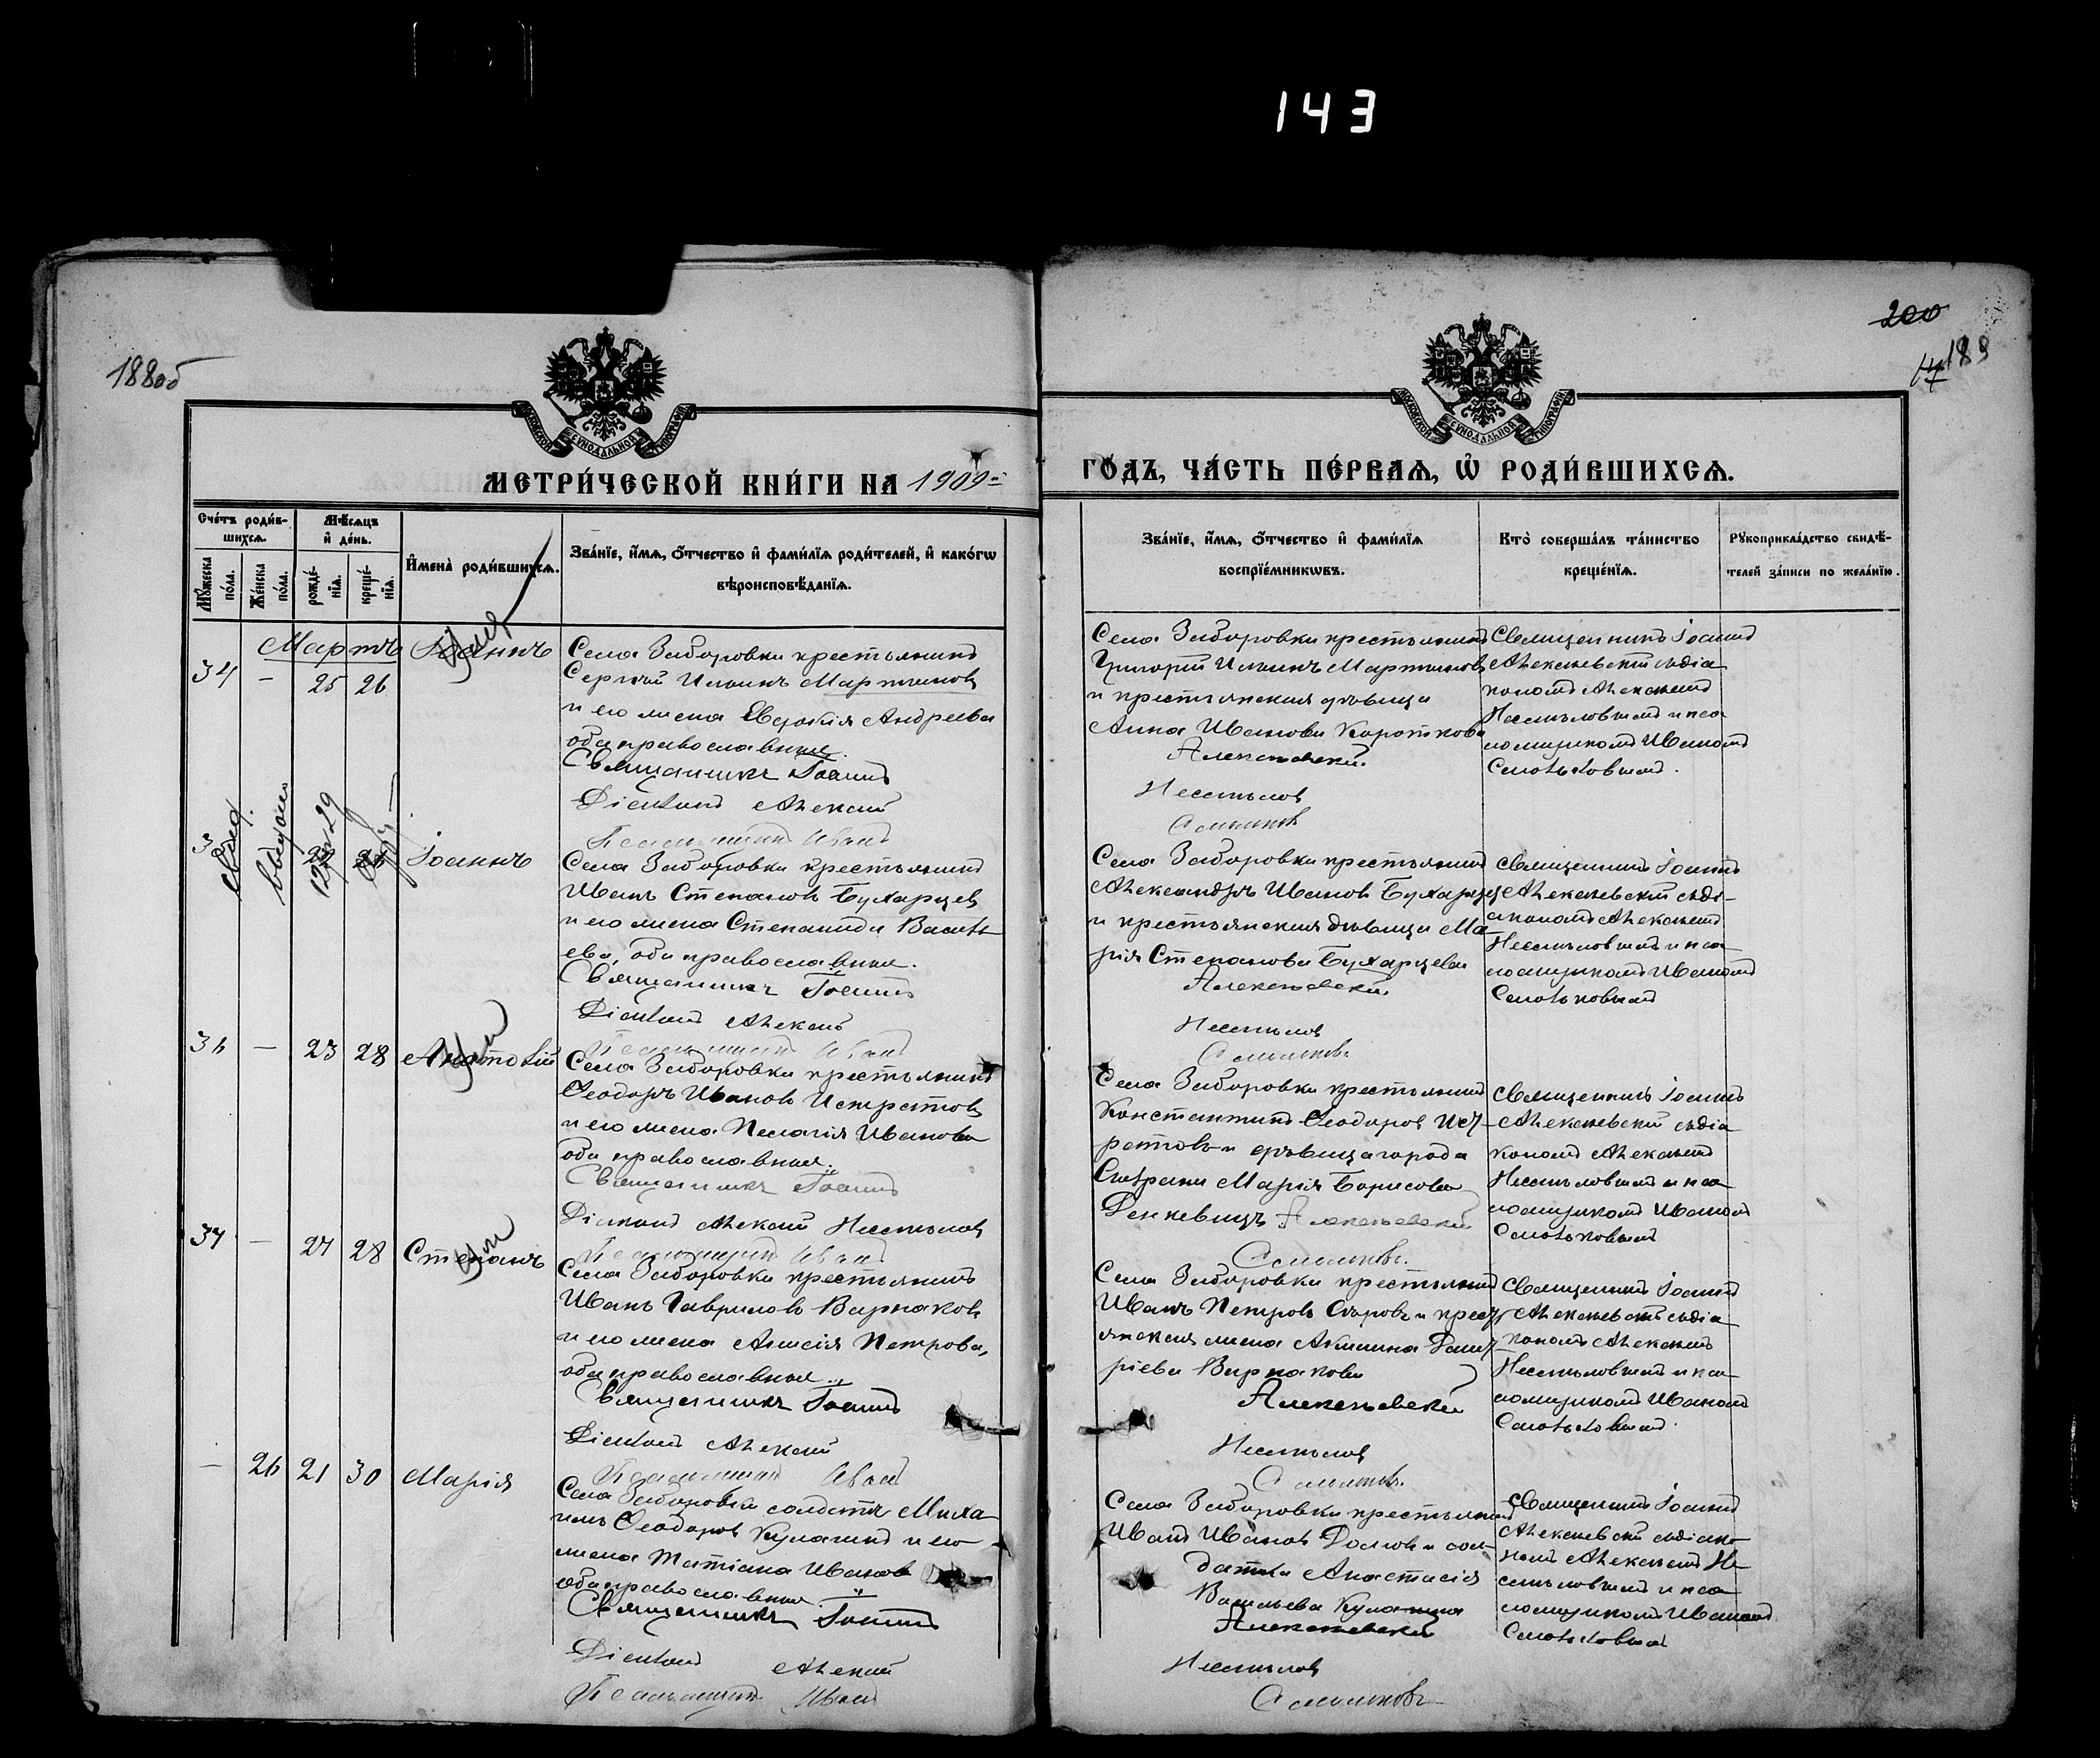 143
188об
200
189
МОСКОВСКОЙ СѴНОДАЛЬНОЙ ТИПОГРАФІИ
МОСКОВСКОЙ СѴНОДАЛЬНОЙ ТИПОГРАФІИ
МЕТРИ́ЧЕСКОЙ КНИ́ГИ НА 1909
ГО́ДЪ, ЧА́СТЬ ПЕ́РВАѦ, Ѡ҆ РОДИ́ВШИХСѦ.
Сче́тъ роди́в-
шихсѧ.
Мѣ́сѧцъ
и҆ де́нь.
Мꙋ́жеска по́ла.
Же́нска по́ла.
рожде́-
нїѧ.
креще́-
нїѧ.
И҆мена̀ роди́вшихсѧ.
Зва́нїе, и҆́мѧ, ѻ҆́тчество и҆ фами́лїѧ роди́телей, и҆ како́гѡ
вѣроисповѣ́данїѧ.
Зва́нїе, и҆́мѧ, ѻ҆́тчество и҆ фами́лїѧ
воспрїе́мникѡвъ.
Кто̀ соверша́лъ та́инство
креще́нїѧ.
Рꙋкоприкла́дство свидѣ́-
телей за́писи по жела́нїю.
Мартъ
34 - 25 26 Іоаннъ
Села Заборовки крестьянинъ
Сергѣй Ильинъ Мартиновъ
и его жена Евдокія Андреева
оба православные.
Священникъ Іоаннъ
Діаконъ Алексій
Псаломщикъ Иванъ
Села Заборовки крестьянинъ
Григорій Ильинъ Мартиновъ
и крестьянская дѣвица
Анна Иванова Короткова
Алексѣевскій
Несмѣловъ
Священникъ Іоаннъ
Алексѣевскій съ діа
кономъ Алексѣемъ
Несмѣловымъ и пса
ломщикомъ Иваномъ
Іоаннъ
Села Заборовки крестьянинъ
Иванъ Степановъ Бухарцевъ
и его жена Степанида Василь
ева, оба православные.
Священникъ Іоаннъ
Діаконъ Алексій
Псаломщикъ Иванъ
Села Заборовки крестьянинъ
Александръ Ивановъ Бухарцевъ
и крестьянская дѣвица Ма
рія Степанова Бухарцева
Алексѣевскій
Несмѣловъ
Священникъ Іоаннъ
Алексѣевскій съ ді-
акономъ Алексѣемъ
Несмѣловымъ и пса-
ломщикомъ Иваномъ
36 - 23 28 Анатолій
Села Заборовки крестьянинъ
Ѳеодоръ Ивановъ Истратовъ
и его жена Пелагія Иванова
оба православные.
Священникъ Іоаннъ
Діаконъ Алексій Несмѣловъ
Псаломщикъ Иванъ
Села Заборовки крестьянинъ
Константинъ Ѳеодоровъ Ист-
ратовъ и дѣвица города
Сызрани Марія Борисова
Алексѣевскій
Священникъ Іоаннъ
Алексѣевскій съ діа
кономъ Алексѣемъ
Несмѣловымъ и пса-
ломщикомъ Иваномъ
37 - 27 28 Степанъ
Села Заборовки крестьянинъ
Иванъ Гавриловъ Варнаковъ
и его жена Анисія Петрова,
оба православные.
Священникъ Іоаннъ
Діаконъ Алексій
Псаломщикъ Иванъ
Села Заборовки крестьянинъ
Иванъ Петровъ и крест
янская жена Акилина Димит
ріева Варнакова
Алексѣевскій
Несмѣловъ
Священникъ Іоаннъ
Алексѣевскій съ діа
кономъ Алексѣемъ
Несмѣловымъ и пса-
ломщикомъ Иваномъ
- 26 21 30 Марія
Села Заборовки солдатъ Миха
илъ Ѳеодоровъ Кулагинъ и его
жена Татіана Иванова
оба православные.
Священникъ Іоаннъ
Діаконъ Алексій
Псаломщикъ Иванъ
Села Заборовки крестьянинъ
Иванъ Ивановъ и сол-
датка Анастасія
Васильева Кулагина
Алексѣевскій
Несмѣловъ
Священникъ Іоаннъ
Алексѣевскій съ діако-
номъ Алексѣемъ Не
смѣловымъ и пса-
ломщикомъ Иваномъ